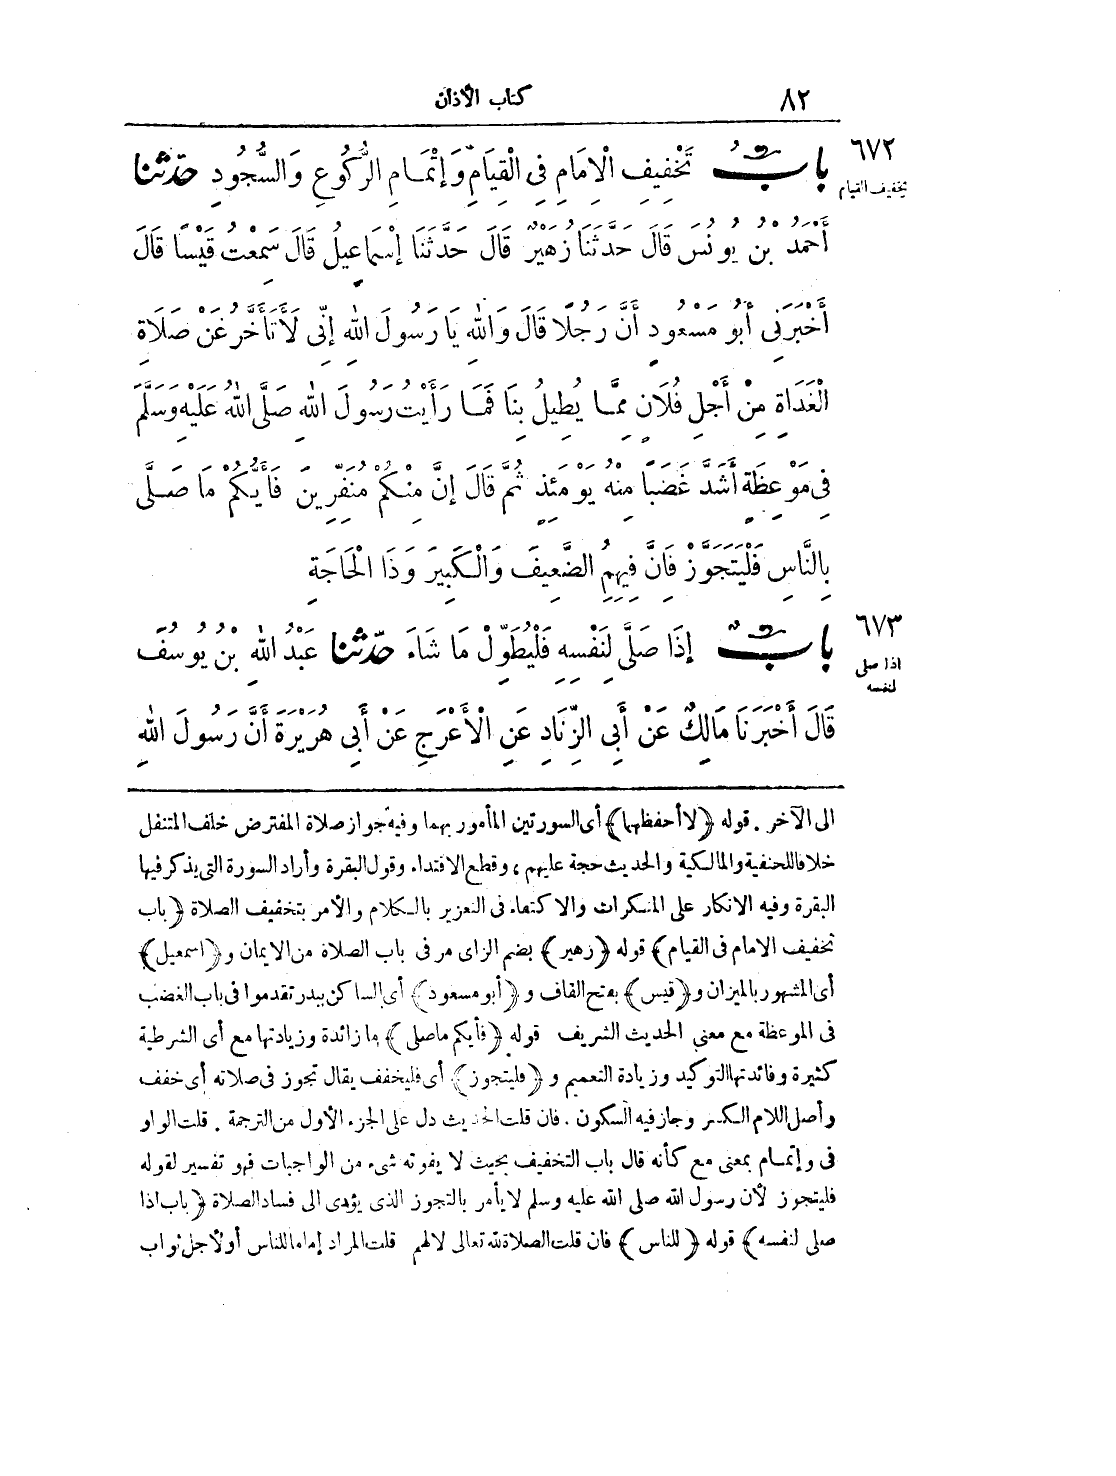 ٨٢
كتاب الأذان
٦٧٢
تخفيف القيام
بابُ تَخْفِيفِ الْإِمَامِ فِي الْقِيَامِ وَإِتْمَامِ الرُّكُوعِ وَالسُّجُودِ حدّثنا
أَحْمَدُ بْنُ يُونُسَ قَالَ حَدَّثَنَا زُهَيْرٌ قَالَ حَدَّثَنَا إِسْمَاعِيلُ قَالَ سَمِعْتُ قَيْسًا قَالَ
أَخْبَرَنِي أَبُو مَسْعُودٍ أَنَّ رَجُلًا قَالَ وَاللهِ يَا رَسُولَ اللهِ إِنِّي لَأَتَأَخَّرُ عَنْ صَلَاةِ
الْغَدَاةِ مِنْ أَجْلِ فُلَانٍ مِمَّا يُطِيلُ بِنَا فَمَا رَأَيْتُ رَسُولَ اللهِ صَلَّى اللهُ عَلَيْهِ وَسَلَّمَ
فِي مَوْعِظَةٍ أَشَدَّ غَضَبًا مِنْهُ يَوْمَئِذٍ ثُمَّ قَالَ إِنَّ مِنْكُمْ مُنَفِّرِينَ فَأَيُّكُمْ مَا صَلَّى
بِالنَّاسِ فَلْيَتَجَوَّزْ فَإِنَّ فِيهِمُ الضَّعِيفَ وَالْكَبِيرَ وَذَا الْحَاجَةِ
٦٧٣
اذا صلى
لنفسه
بابٌ إِذَا صَلَّى لِنَفْسِهِ فَلْيُطَوِّلْ مَا شَاءَ حدّثنا عَبْدُ اللهِ بْنُ يُوسُفَ
قَالَ أَخْبَرَنَا مَالِكٌ عَنْ أَبِي الزِّنَادِ عَنِ الْأَعْرَجِ عَنْ أَبِي هُرَيْرَةَ أَنَّ رَسُولَ اللهِ
الى الآخر . قوله ﴿لا أحفظها﴾ أى السورتين المأمور بهما وفيه جواز صلاة المفترض خلف المتنفل
خلافا للحنفية والمالكية والحديث حجة عليهم ، وقطع الاقتداء وقول البقرة وأراد السورة التى يذكر فيها
البقرة وفيه الانكار على المنكرات والاكتفاء فى التعزير بالكلام والأمر بتخفيف الصلاة ﴿باب
تخفيف الامام فى القيام﴾ قوله ﴿زهير﴾ بضم الزاى مر فى باب الصلاة من الايمان و﴿اسمعيل﴾
أى المشهور بالميزان و﴿قيس﴾ بفتح القاف و﴿أبو مسعود﴾ أى الساكن ببدر تقدموا فى باب الغضب
فى الموعظة مع معنى الحديث الشريف قوله ﴿فأيكم ما صلى﴾ ما زائدة وزيادتها مع أى الشرطية
كثيرة وفائدتها التوكيد وزيادة التعميم و﴿فليتجوز﴾ أى فليخفف يقال تجوز فى صلاته أى خفف
وأصل اللام الكسر وجاز فيه السكون . فان قلت الحديث دل على الجزء الأول من الترجمة . قلت الواو
فى وإتمام بمعنى مع كأنه قال باب التخفيف بحيث لا يفوته شىء من الواجبات فهو تفسير لقوله
فليتجوز لأن رسول الله صلى الله عليه وسلم لا يأمر بالتجوز الذى يؤدى الى فساد الصلاة ﴿باب اذا
صلى لنفسه﴾ قوله ﴿للناس﴾ فان قلت الصلاة لله تعالى لا لهم قلت المراد إماما للناس أو لأجل ثواب